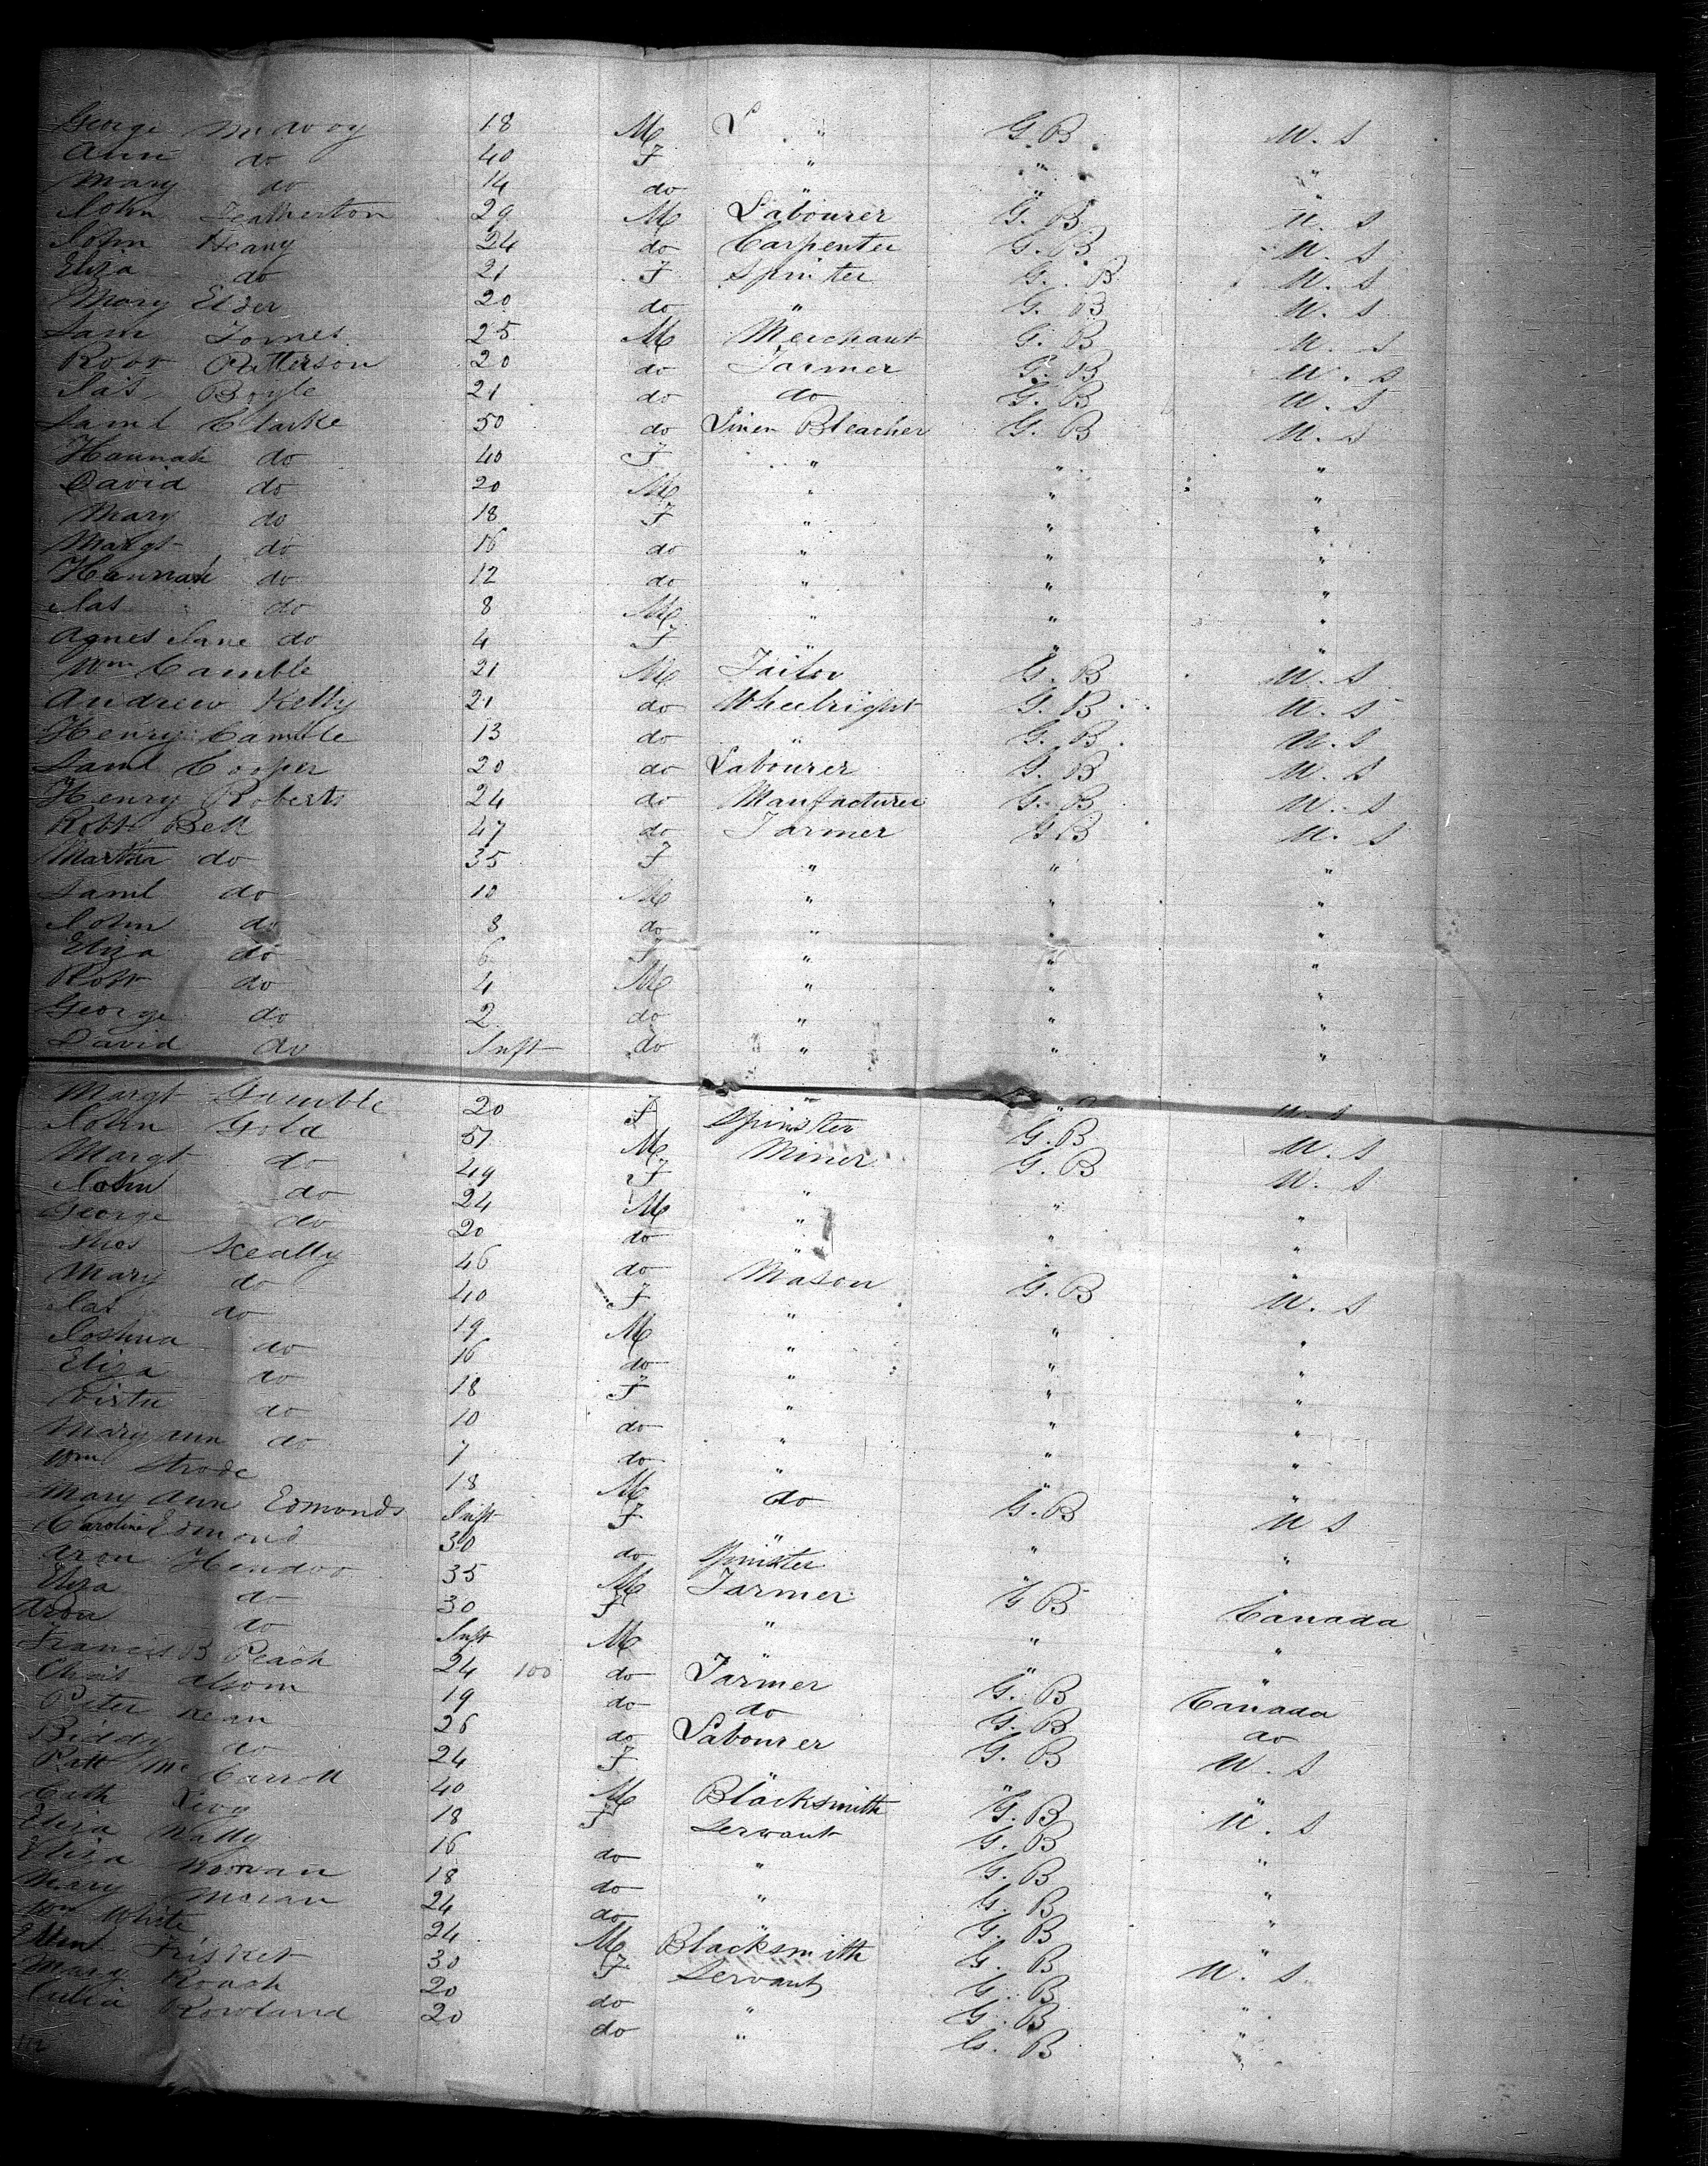 George McAvoy 18 M L " G.B U.S
Ann do 40 F " " "
Mary do 14 do " " "
John Featherton 29 M Labourer G.B U.S
John Heany 24 do Carpenter G.B U.S
Eliza do 21 F Spinster G.B U.S
Mary Elder 20 do " G.B U.S
Sam Tomes 25 M Merchant G.B U.S
Robt Patterson 20 do Farmer G.B U.S
Jas Boyle 21 do do G.B U.S
Saml Clarke 50 do Linen Bleacher G.B U.S
Hannah do 40 F " " "
David do 20 M " " "
Mary do 18 F " " "
Margt do 16 do " " "
Hannah do 12 do " " "
Jas do 8 M " " "
Agnes Jane do 4 F " " "
Wm Camble 21 M Tailor G.B U.S
Andrew Kelly 21 do Wheelright G.B U.S
Henry Camble 13 do " G.B U.S
Saml Cooper 20 do Labourer G.B U.S
Henry Roberts 24 do Manufacturer G.B U.S
Robt Bell 47 do Farmer G.B U.S
Martha do 35 F " " "
Saml do 10 M " " "
John do 8 do " " "
Eliza do 6 F " " "
Robt do 4 M " " "
George do 2 do " " "
David do Inft do " " "
Margt Gamble 20 F Spinster G.B U.S
John Gold 51 M Miner G.B U.S
Margt do 49 F " " "
John do 24 M " " "
George do 20 do " " "
Thos Keally 46 do Mason G.B U.S
Mary do 40 F " " "
Jas do 19 M " " "
Joshua do 16 do " " "
Eliza do 18 F " " "
do 10 do " " "
Mary Ann do 7 do " " "
Wm Strode 18 M do G.B U S
Mary Ann Edmonds Inft F " " "
Caroline Edmond 30 do Spinster
Aron Hendoo 35 M Farmer G B Canada
Eliza do 30 F " " "
Aron do Inft M " " "
Francis B Peach 24 100 do Farmer G.B Canada
Christ Alsom 19 do do G.B do
Peter Kean 26 do Labourer G.B U.S
Biddy do 24 F " " "
Patt McCarroll 40 M Blacksmith G.B U.S
Cath 18 F Servant G.B "
Eliza Nally 16 do " G.B "
Eliza 18 do " G.B "
Mary Moran 24 do " G.B "
Wm White 24 M Blacksmith G.B U.S
Frisket 30 F Servant G.B "
Mary Roach 20 do " G.B "
Julia Rowland 20 do " G.B
112